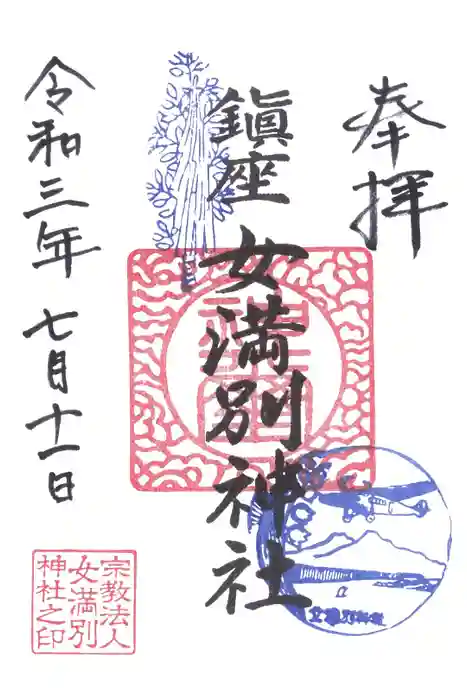 奉拝
鎮座
女満別神社
令和三年七月十一日
宗教法人
女満別
神社之印